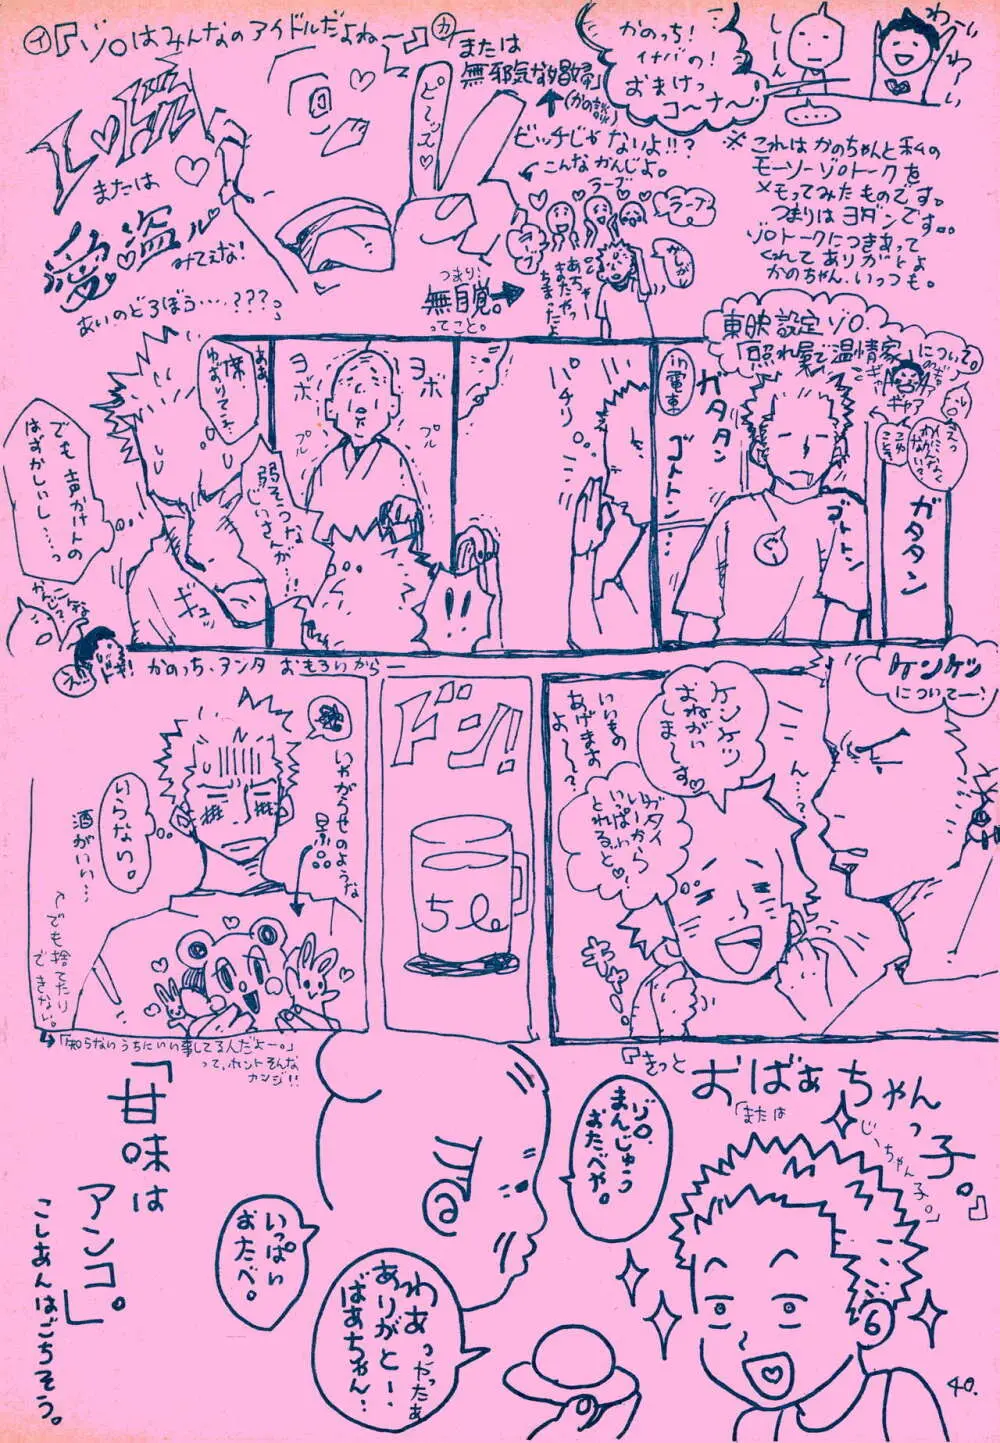 かのっち!
イナバの!
おまけっ
コ〜ナ〜
わーい
わーい
しーん
…
イ『ゾロはみんなのアイドルだよね〜』カ
または
無邪気な娼婦」
ビッチじゃないよ!!?
こんなかんじよ。
ラーブ
ラーブ
ラーブ
ピース
または
愛盗ル
みてえな!
あいのどろぼう…、???
つまり、
無自覚。
ってこと。
※これはかのちゃんと私の
モーソーゾロトークを
メモってみたものです。
つまりはヨダンです。。
ゾロトークにつきあって
くれてありガとよ
かのちゃん、いっつも。
東映設定ゾロ、
「照れ屋で温情家」
について。
in電車
ガタタン
ゴトトン…
ゴトトン
ガタタン
パチリ
ヨボ
ヨボ
プル
プル
弱そうな
じいさんが…!!
ああ
席
ゆずりてェ…
でも声かけんの
はずかしいし……っ
ギュッ
こんな
かんじで
え!!
かのっち、アンタ おもろいからー
ケンケツ
についてー!
ん…?
ケンケツ
おねがい
しまーす♡
いいもの
あげますよ〜?
ガタイ
いーから
いっぱい
とれるっと♡!
ドン!!
5ℓ
いやがらせのような
景品
いらない。
酒がいい…
でも捨てたり
できない。
「知らないうちにいい事してる人だよー。」
って、ホントそんな
カンジ!!
『きっと
おばあちゃんっ子。』
「または
じいちゃん子。」
ゾロ、
まんじゅう
おたべや。
いっぱい
おたべ。
わあっやったぁ
ありがとー、
ばあちゃん…
「甘味は
アンコ。」
こしあんはごちそう。
40.